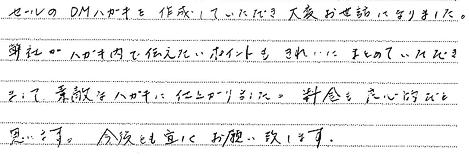 セールのDMハガキを作成していただき大変お世話になりました。
弊社がハガキ内で伝えたいポイントもきれいにまとめていただき
まして素敵なハガキに仕上がりました。料金も良心的だと
思います。今後とも宜しくお願い致します。